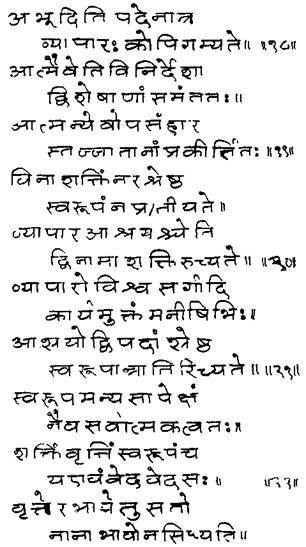 अभूदिति पदेनात्र
व्यापारः कोपिगम्यते॥ ॥१८॥
आत्मैवेति विनिर्देशा
द्विशेषाणां समंततः॥
आत्मन्येवोपसंहार
स्तज्जातानां प्रकीर्त्तितः॥ ॥१९॥
विना शक्तिं नरश्रेष्ठ
स्वरूपं न प्रतीयते॥
व्यापार आश्रयश्चेति
द्विनामा शक्तिरुच्यते॥ ॥२०॥
व्यापारो विश्वसर्गादि
कार्यमुक्तं मनीषिभिः॥
आश्रयो द्विपदां श्रेष्ठ
स्वरूपान्नातिरिच्यते॥ ॥२१॥
स्वरूपमन्यसापेक्षं
नैव सर्वात्मकत्वतः॥
शक्तिं वृत्तिं स्वरूपं च
वेद वेद सः॥ ॥२२॥
वृत्तेरभावे तु सतो
नानाभावो न सिध्यति॥